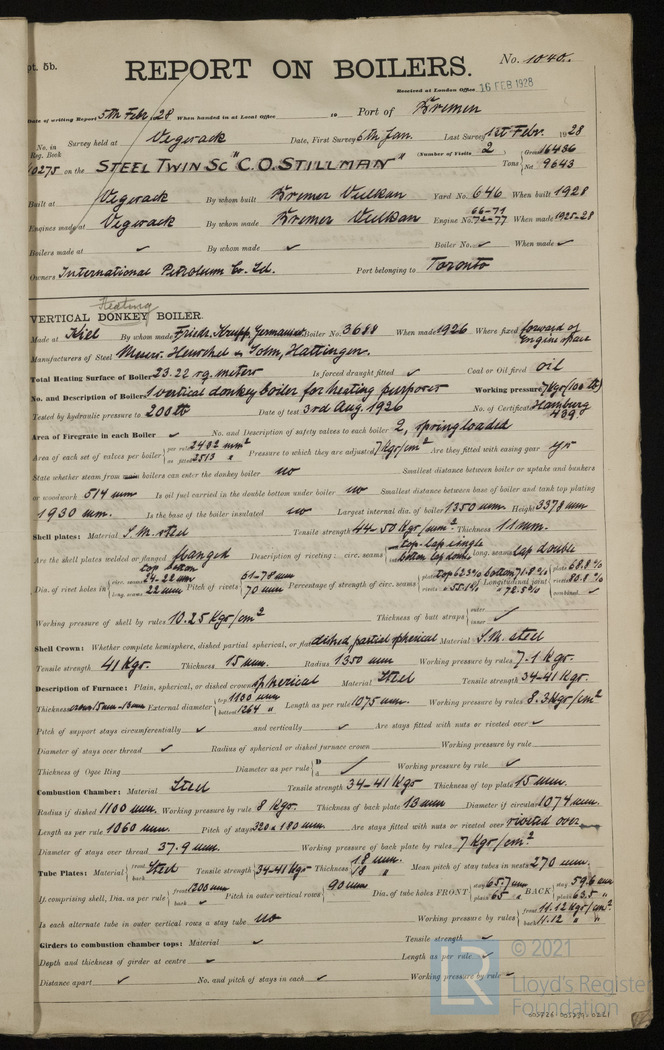 pt. 5b.
No. 1040.
REPORT ON BOILERS.
Received at London Office 16 FEB 1928
Date of writing Report 5th Feb. 28 When handed in at Local Office 19 Port of Bremen
No. in Reg. Book Survey held at Vegesack Date, First Survey 6th Jan. Last Survey 1st Febr. 1928
10275 on the STEEL TWIN SC "C.O. STILLMAN" (Number of Visits 2) Tons Gross 16436 Net 9643
Built at Vegesack By whom built Bremer Vulkan Yard No. 646 When built 1928
Engines made at Vegesack By whom made Bremer Vulkan Engine No. 66-71 72-77 When made 1925-28
Boilers made at ✓ By whom made ✓ Boiler No. ✓ When made ✓
Owners International Petroleum Co. Ld. Port belonging to Toronto
Heating
VERTICAL DONKEY BOILER.
Made at Kiel By whom made Friedr. Krupp Germania Boiler No. 3688 When made 1926 Where fixed forward of Engine space
Manufacturers of Steel Messrs. Henschel & Sohn, Hattingen.
Total Heating Surface of Boiler 23.22 sq. meters Is forced draught fitted ✓ Coal or Oil fired oil
No. and Description of Boilers 1 vertical donkey boiler for heating purposes Working pressure 7 Kgs/(100 lb)
Tested by hydraulic pressure to 200 lb Date of test 3rd Aug. 1926 No. of Certificate Hamburg 439.
Area of Firegrate in each Boiler ✓ No. and Description of safety valves to each boiler 2, spring loaded
Area of each set of valves per boiler per rule 2432 mm² as fitted 2513 " Pressure to which they are adjusted 7 Kgs/cm² Are they fitted with easing gear yes
State whether steam from main boilers can enter the donkey boiler no Smallest distance between boiler or uptake and bunkers
or woodwork 514 mm Is oil fuel carried in the double bottom under boiler no Smallest distance between base of boiler and tank top plating
1930 mm. Is the base of the boiler insulated no Largest internal dia. of boiler 1350 mm. Height 3378 mm
Shell plates: Material S.M. steel Tensile strength 44-50 Kgs/mm² Thickness 11 mm.
Are the shell plates welded or flanged flanged Description of riveting: circ. seams top lap single bottom lap double long. seams lap double
Dia. of rivet holes in circ. seams top bottom 24-22 mm long. seams 22 mm Pitch of rivets 51-78 mm 70 mm Percentage of strength of circ. seams plate top 62.3% bottom 71.8% rivets " 55.1% " 72.5% of Longitudinal joint plate 68.8% rivets 80.8% combined ✓
Working pressure of shell by rules 10.25 Kgs/cm² Thickness of butt straps outer inner ✓
Shell Crown: Whether complete hemisphere, dished partial spherical, or flat dished partial spherical Material S.M. steel
Tensile strength 41 Kgs. Thickness 15 mm. Radius 1350 mm Working pressure by rules 7.1 Kgs.
Description of Furnace: Plain, spherical, or dished crown spherical Material Steel Tensile strength 34-41 Kgs.
Thickness crown 15 mm-13 mm External diameter top 1100 mm bottom 1264 " Length as per rule 1075 mm. Working pressure by rules 8.3 Kgs/cm²
Pitch of support stays circumferentially ✓ and vertically ✓ Are stays fitted with nuts or riveted over ✓
Diameter of stays over thread ✓ Radius of spherical or dished furnace crown Working pressure by rule
Thickness of Ogee Ring Diameter as per rule D d ✓ Working pressure by rule ✓
Combustion Chamber: Material Steel Tensile strength 34-41 Kgs Thickness of top plate 15 mm.
Radius if dished 1100 mm. Working pressure by rule 8 Kgs. Thickness of back plate 13 mm Diameter if circular 1074 mm.
Length as per rule 1060 mm. Pitch of stays 320 x 180 mm. Are stays fitted with nuts or riveted over riveted over
Diameter of stays over thread 37.9 mm. Working pressure of back plate by rules 7 Kgs/cm²
Tube Plates: Material front back Steel Tensile strength 34-41 Kgs Thickness 18 mm. 18 " Mean pitch of stay tubes in nests 270 mm.
If comprising shell, Dia. as per rule front 1200 mm back Pitch in outer vertical rows 90 mm Dia. of tube holes FRONT stay 65.7 mm plain 65 " BACK stay 59.6 mm plain 63.5 "
Is each alternate tube in outer vertical rows a stay tube no Working pressure by rules front 11.12 Kgs/cm² back 11.12 " "
Girders to combustion chamber tops: Material ✓ Tensile strength ✓
Depth and thickness of girder at centre ✓ Length as per rule ✓
Distance apart ✓ No. and pitch of stays in each ✓ Working pressure by rule ✓
LR © 2021 Lloyd's Register Foundation